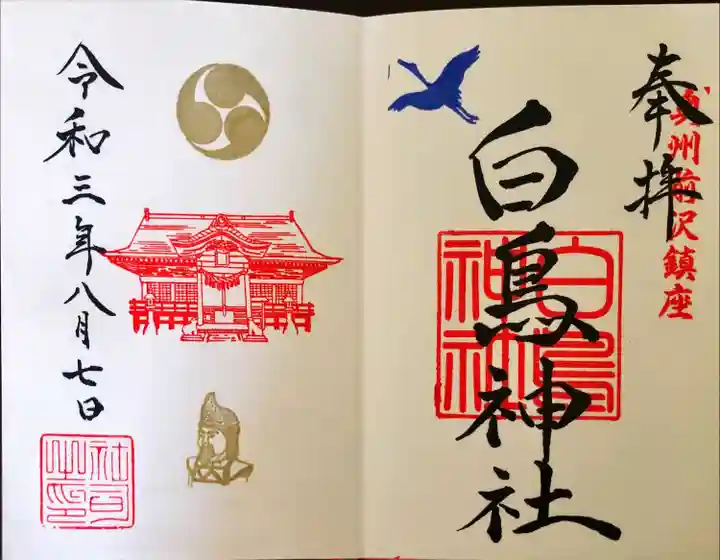 奉拝
奥州前沢鎮座
白鳥神社
白鳥
神社
令和三年八月七日
社司
之印